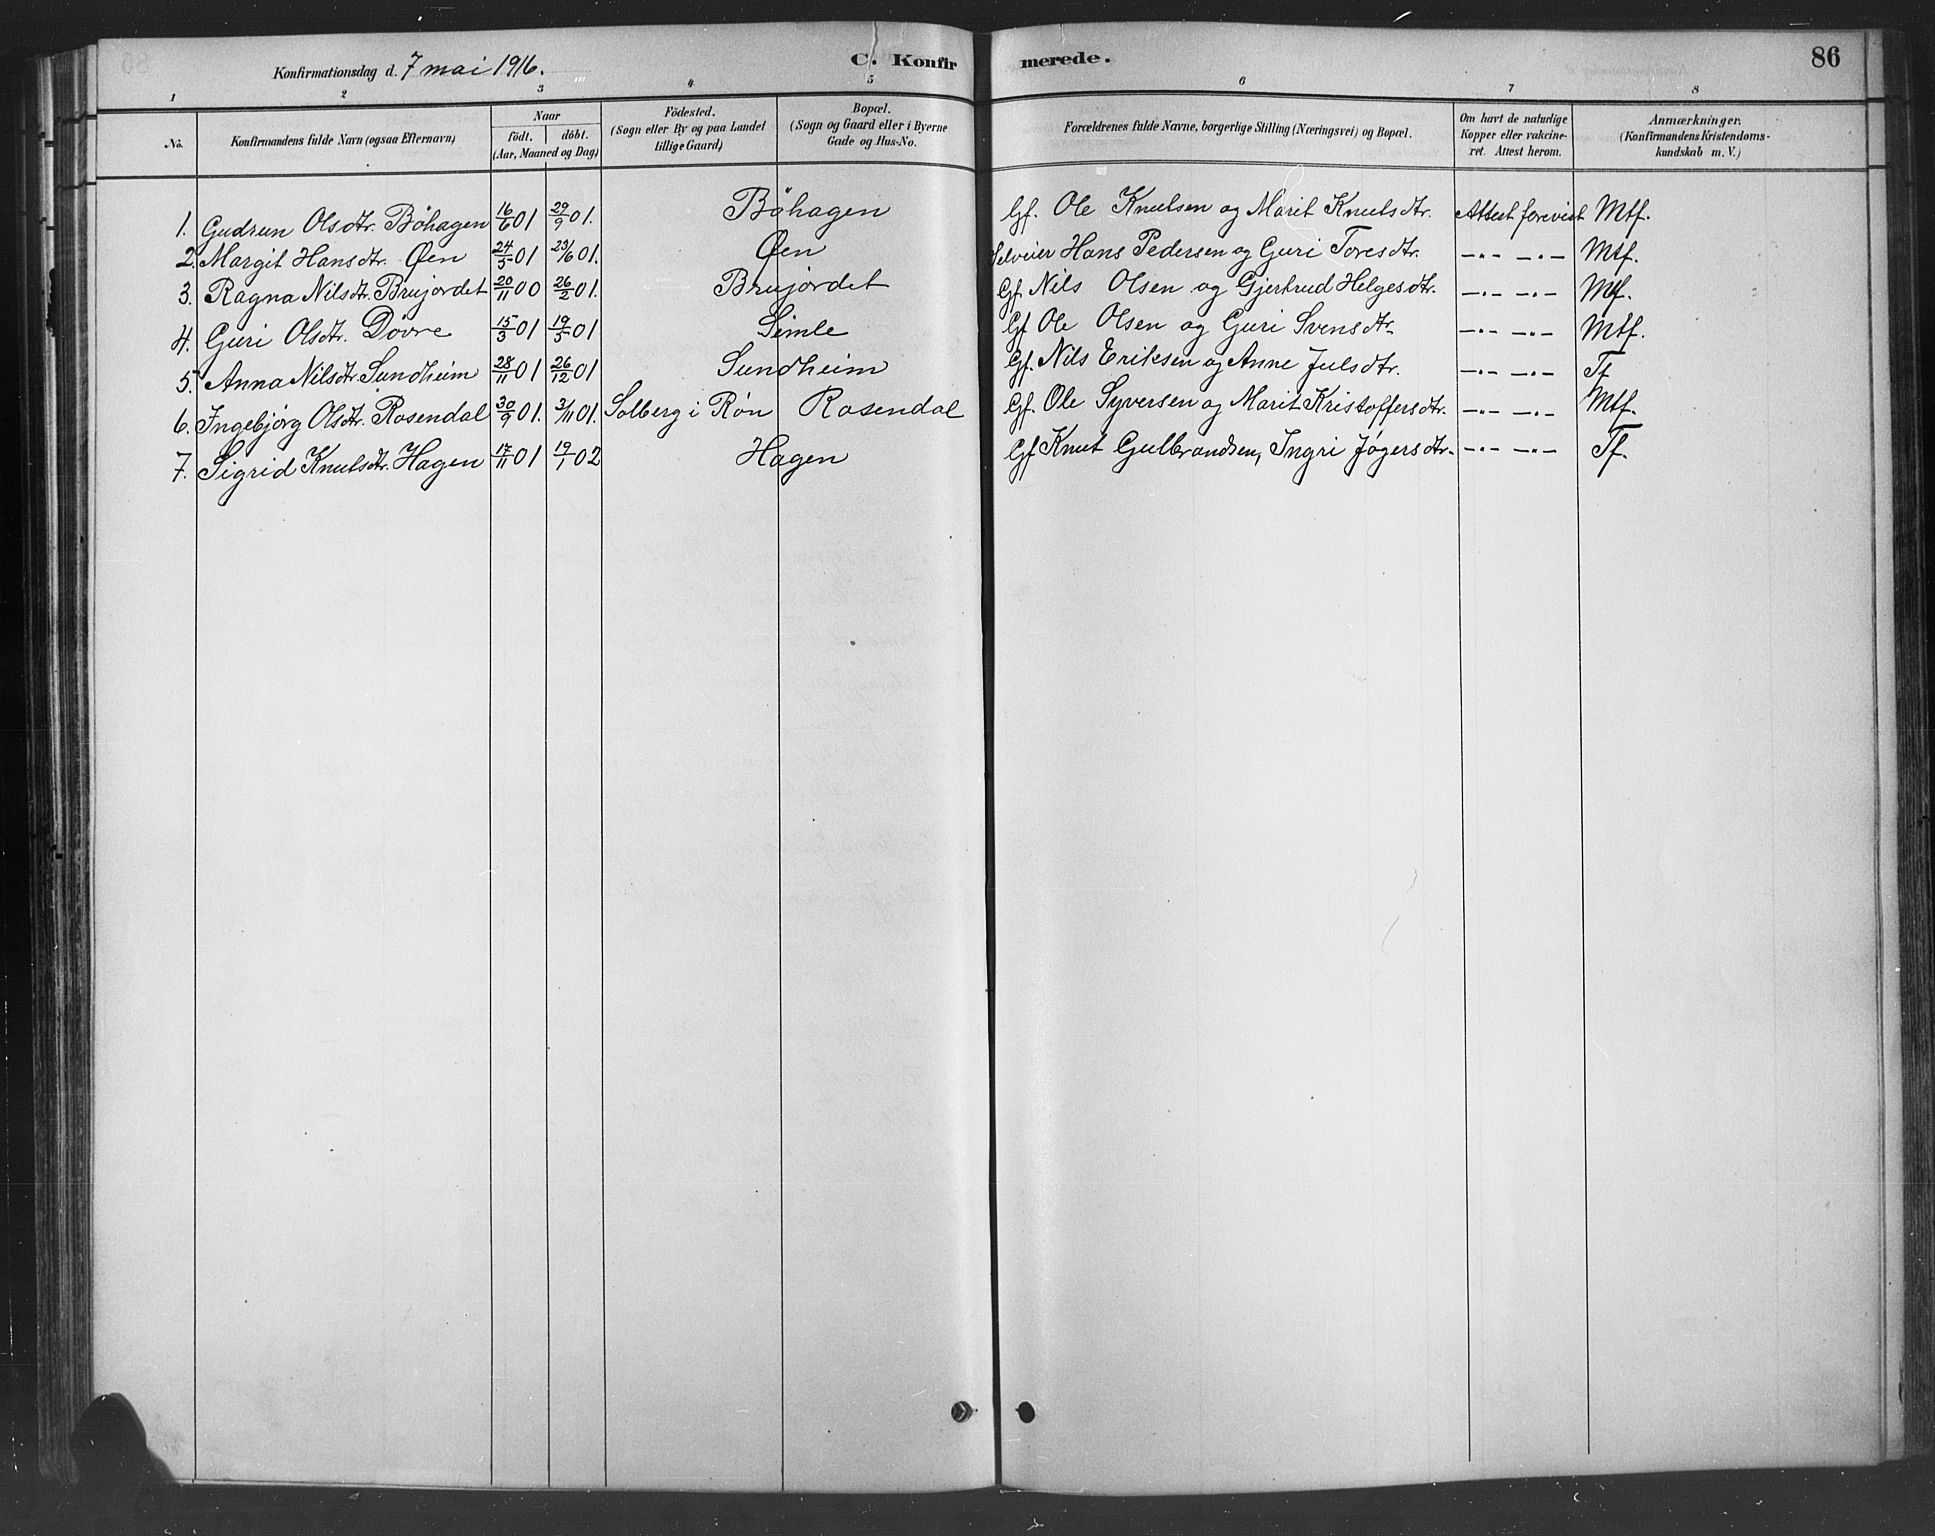 Konfirmationsdag d. 7 mai 1916. C. Konfirmerede. 86
1 2 3 4 5 6 7 8
No. Konfirmandens fulde Navn (ogsaa Efternavn) Naar födt. döbt. (Aar, Maaned og Dag) Födested. (Sogn eller By og paa Landet tillige Gaard) Bopæl. (Sogn og Gaard eller i Byerne Gade og Hus-No. Forældrenes fulde Navne, borgerlige Stilling (Næringsvei) og Bopæl. Om havt de naturlige Kopper eller vakcineret. Attest herom. Anmærkninger. (Konfirmandens Kristendomskundskab m. V.)
1. Gudrun Olsdtr. Böhagen 16/6 01 29/9 01. Böhagen Gf. Ole Knutsen og Marit Knutsdtr. Attest forevist Mtf.
2. Margit Hansdtr. Øen 24/5 01 23/6 01. Øen Selveier Hans Pedersen og Guri Toresdtr. —„— —„— Mtf.
3. Ragna Nilsdtr. Brujordet 20/11 00 26/2 01. Brujordet Gf. Nils Olsen og Gjertrud Helgesdtr. —„— —„— Mtf.
4. Guri Olsdtr. Dövre 15/3 01 19/5 01 Simle Gf Ole Olsen og Guri Svensdtr —„— —„— Mtf.
5. Anna Nilsdtr. Sundheim 28/11 01 26/12 01 Sundheim Gf. Nils Eriksen og Anne Julsdtr. —„— —„— Tf
6. Ingebjörg Olsdtr. Rosendal 30/9 01. 3/11 01. Solberg i Røn Rosendal Gf. Ole Syversen og Marit Kristoffersdtr. —„— —„— Mtf.
7. Sigrid Knutsdtr. Hagen 17/11 01 19/1 02 Hagen Gf Knut Gulbrandsen, Ingri Jøgersdtr. —„— —„— Tf.